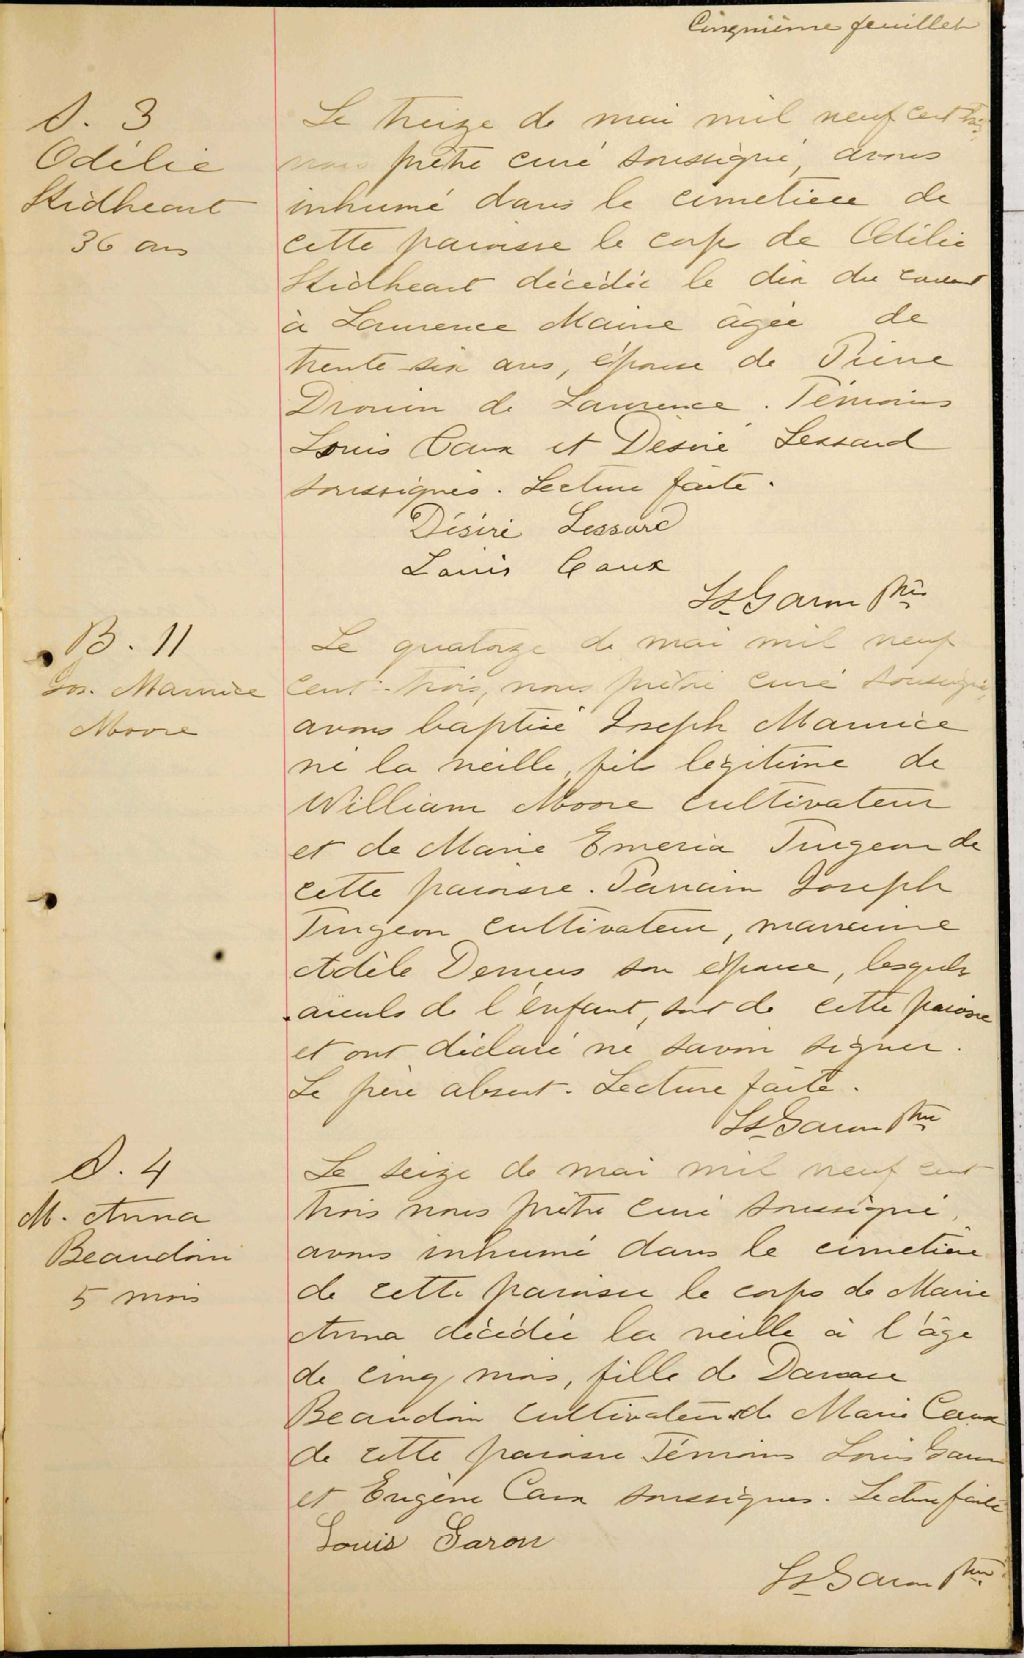 Cinquième feuillet
S. 3
Odélie
Skidheart
36 ans
Le treize de mai mil neuf cent trois
nous prêtre curé soussigné, avons
inhumé dans le cimetiere de
cette paroisse le corps de Odélie
Skidheart décédée le dix du courant
à Lawrence Maine âgée de
trente-six ans, épouse de Pierre
Drouin de Lawrence. Témoins
Louis Caux et Désiré Lessard
soussignés. Lecture faite.
Désiré Lessard
Louis Caux
Ls Garon Ptre
B. 11
Jos. Maurice
Moore
Le quatorze de mai mil neuf
cent-trois, nous prêtre curé soussigné,
avons baptisé Joseph Maurice
né la veille, fils légitime de
William Moore cultivateur
et de Marie Emeria Turgeon de
cette paroisse. Parrain Joseph
Turgeon cultivateur, marraine
Adèle Demers son épouse, lesquels
aïeuls de l'enfant, sont de cette paroisse
et ont déclaré ne savoir signer.
Le père absent. Lecture faite.
Ls Garon Ptre
S. 4
M. Anna
Beaudoin
5 mois
Le seize de mai mil neuf cent
trois nous prêtre curé soussigné,
avons inhumé dans le cimetière
de cette paroisse le corps de Marie
Anna décédée la veille à l'âge
de cinq mois, fille de Damase
Beaudoin cultivateur & de Marie Caux
de cette paroisse Témoins Louis Garon
et Eugène Caux soussignés. Lecture faite
Louis Garon
Ls Garon Ptre